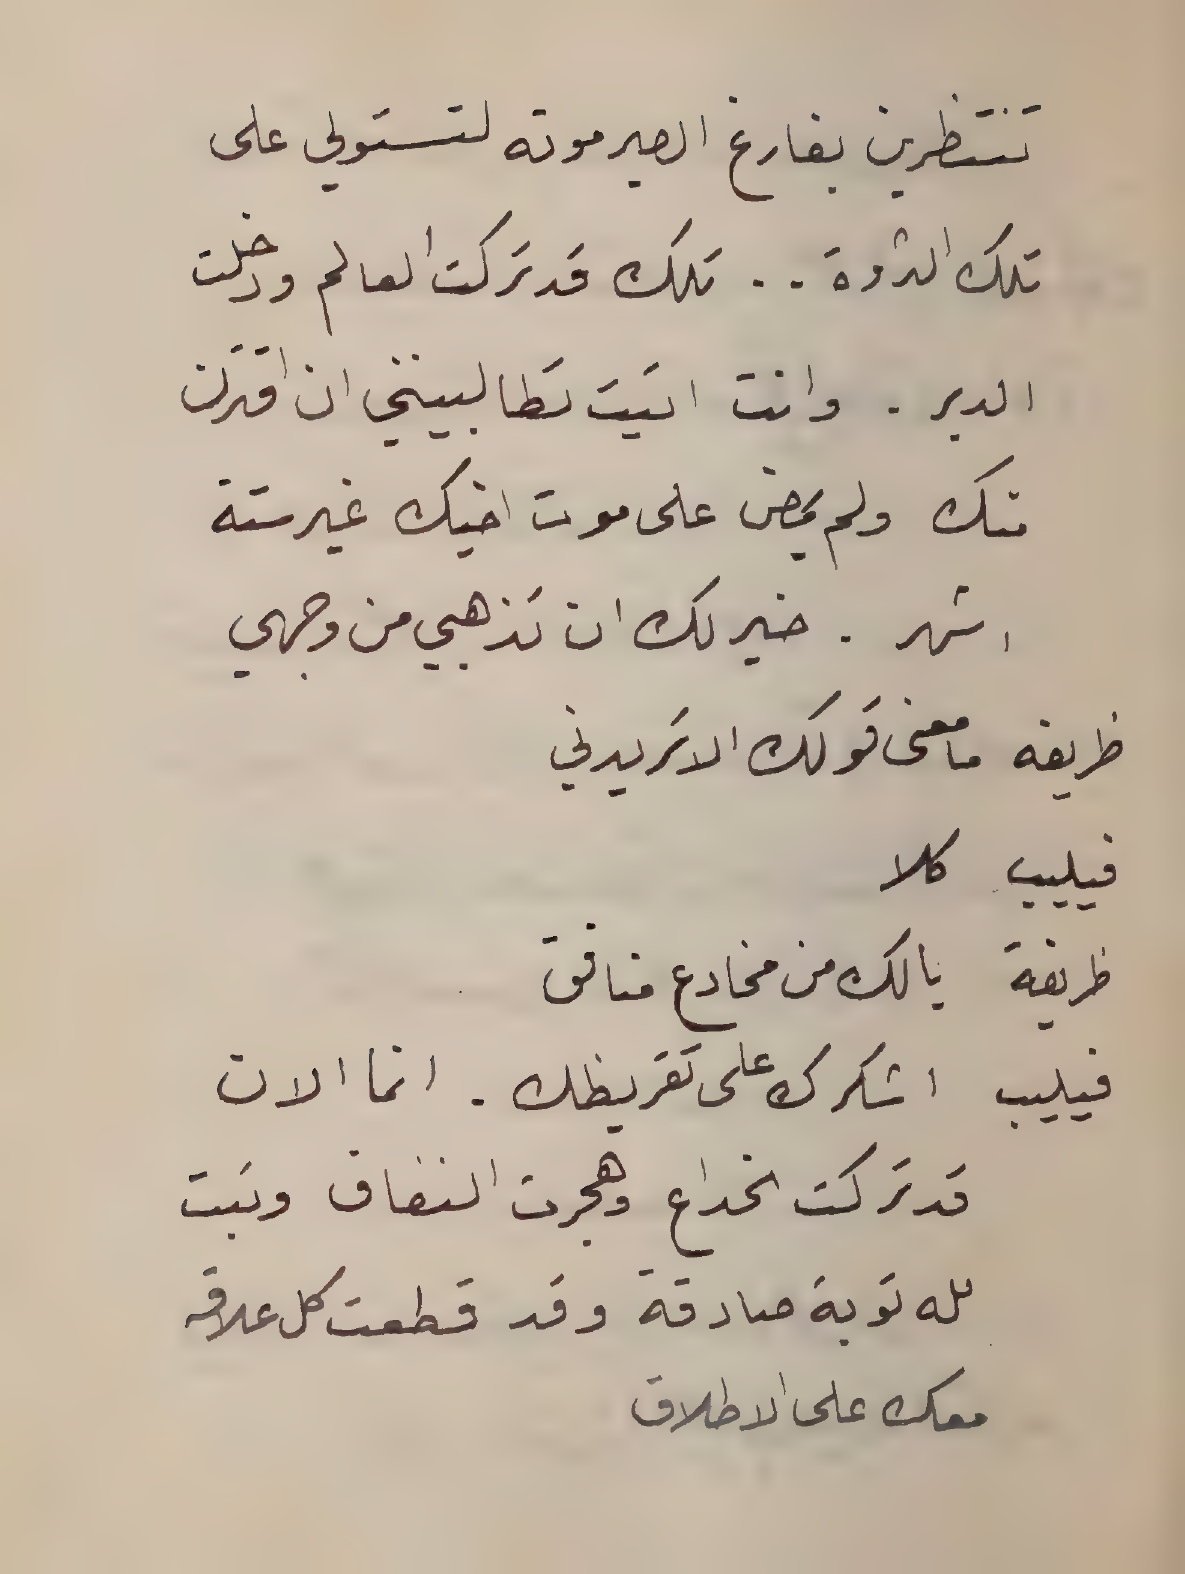 تنتظرين بفارغ الصبر موته لتستولي على
تلك الثروة .. تلك قد تركت العالم ودخلت
الدير . وانت اتيت تطالبينني ان اقترن
منك ولم يمض على موت اخيك غير ستة
اشهر . خير لك ان تذهبي من وجهي
ظريفه ما معنى قولك الا تريدني
فيليب كلا
ظريفة يا لك من مخادع منافق
فيليب اشكرك على تقريظك . انما الان
قد تركت الخداع وهجرت النفاق وتبت
لله توبة صادقة وقد قطعت كل علاقه
معك على الاطلاق